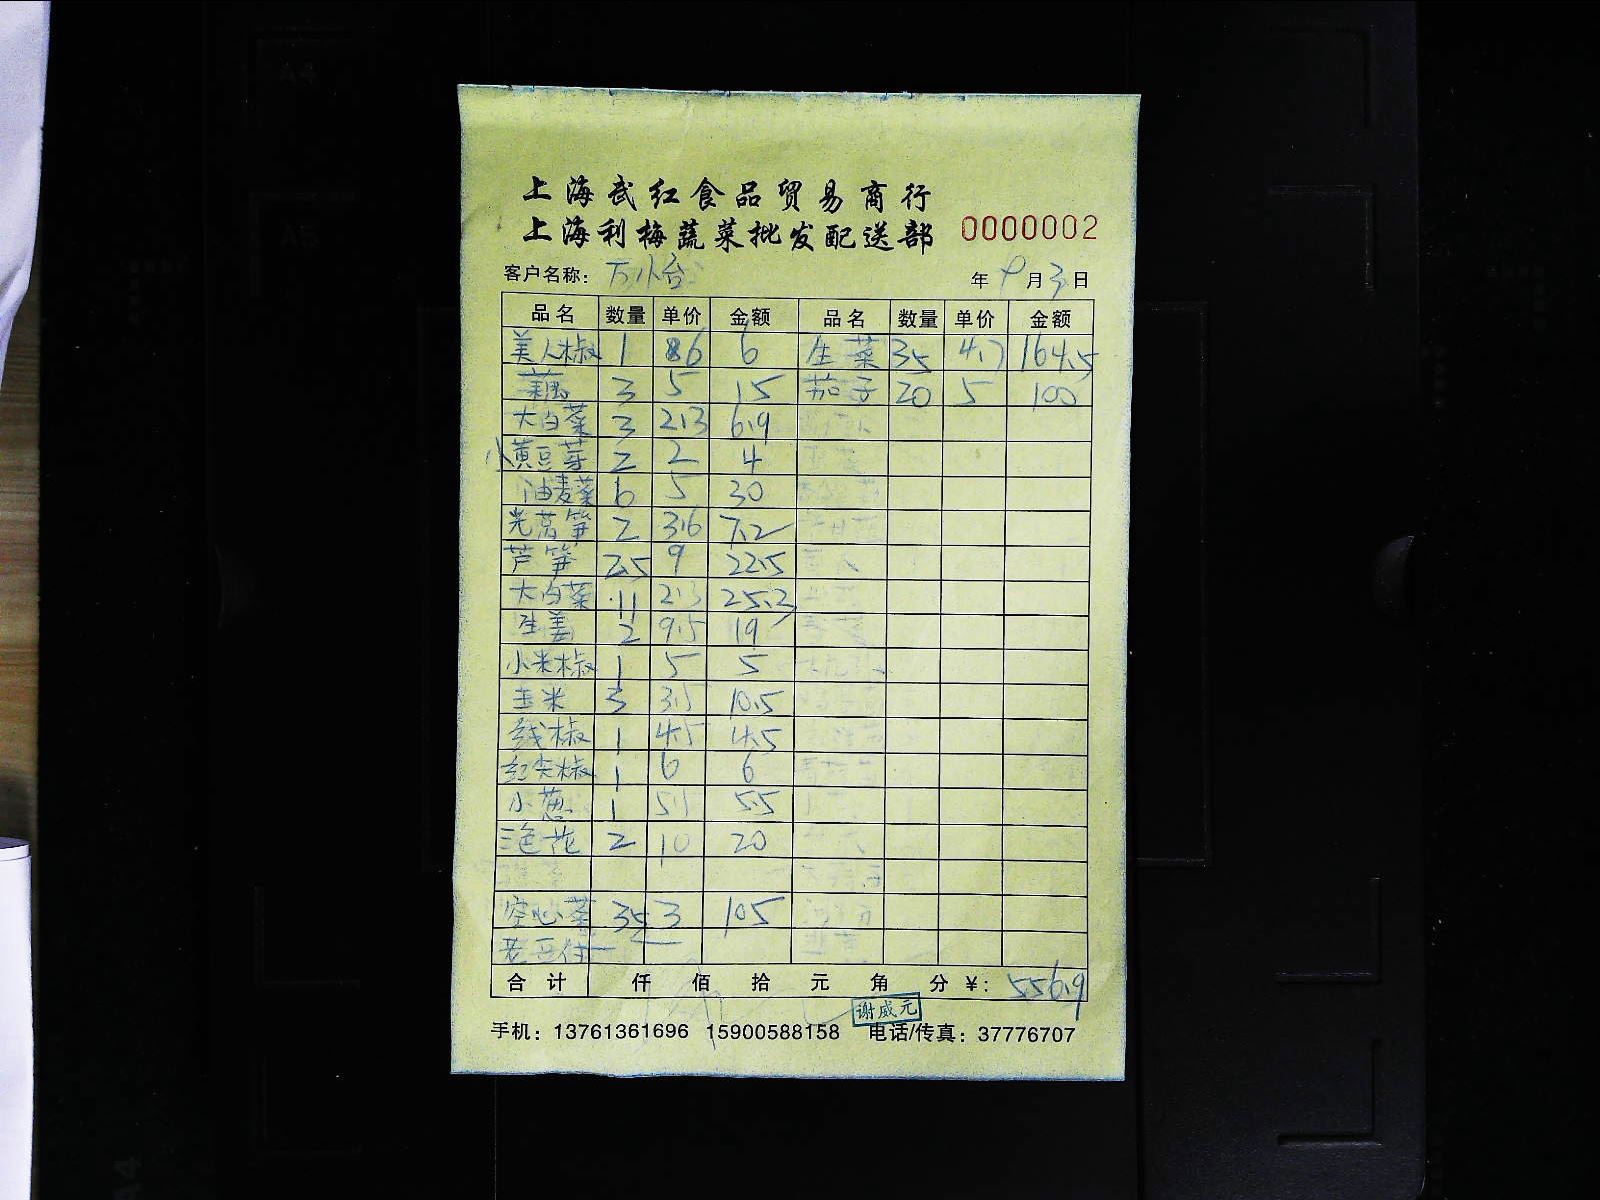 上海武红食品贸易商行
上海利梅蔬菜批发配送部 0000002
客户名称: 万小谷 年 9 月 3 日
品名 数量 单价 金额 品名 数量 单价 金额
美人椒 1 6 6 生菜 35 4.7 164.5
藕 3 5 15 茄子 20 5 100
大白菜 3 2.3 6.9
小黄豆芽 2 2 4
油麦菜 6 5 30
光莴笋 2 3.6 7.2
芦笋 2.5 9 22.5
大白菜 11 2.3 25.3
生姜 2 9.5 19
小米椒 1 5 5
玉米 3 3.5 10.5
线椒 1 4.5 4.5
红尖椒 1 6 6
小葱 1 5.5 5.5
三色花 2 10 20
空心菜 35 3 105
合计 仟 佰 拾 元 角 分 ¥: 556.9
谢威元
手机: 13761361696 15900588158 电话/传真: 37776707